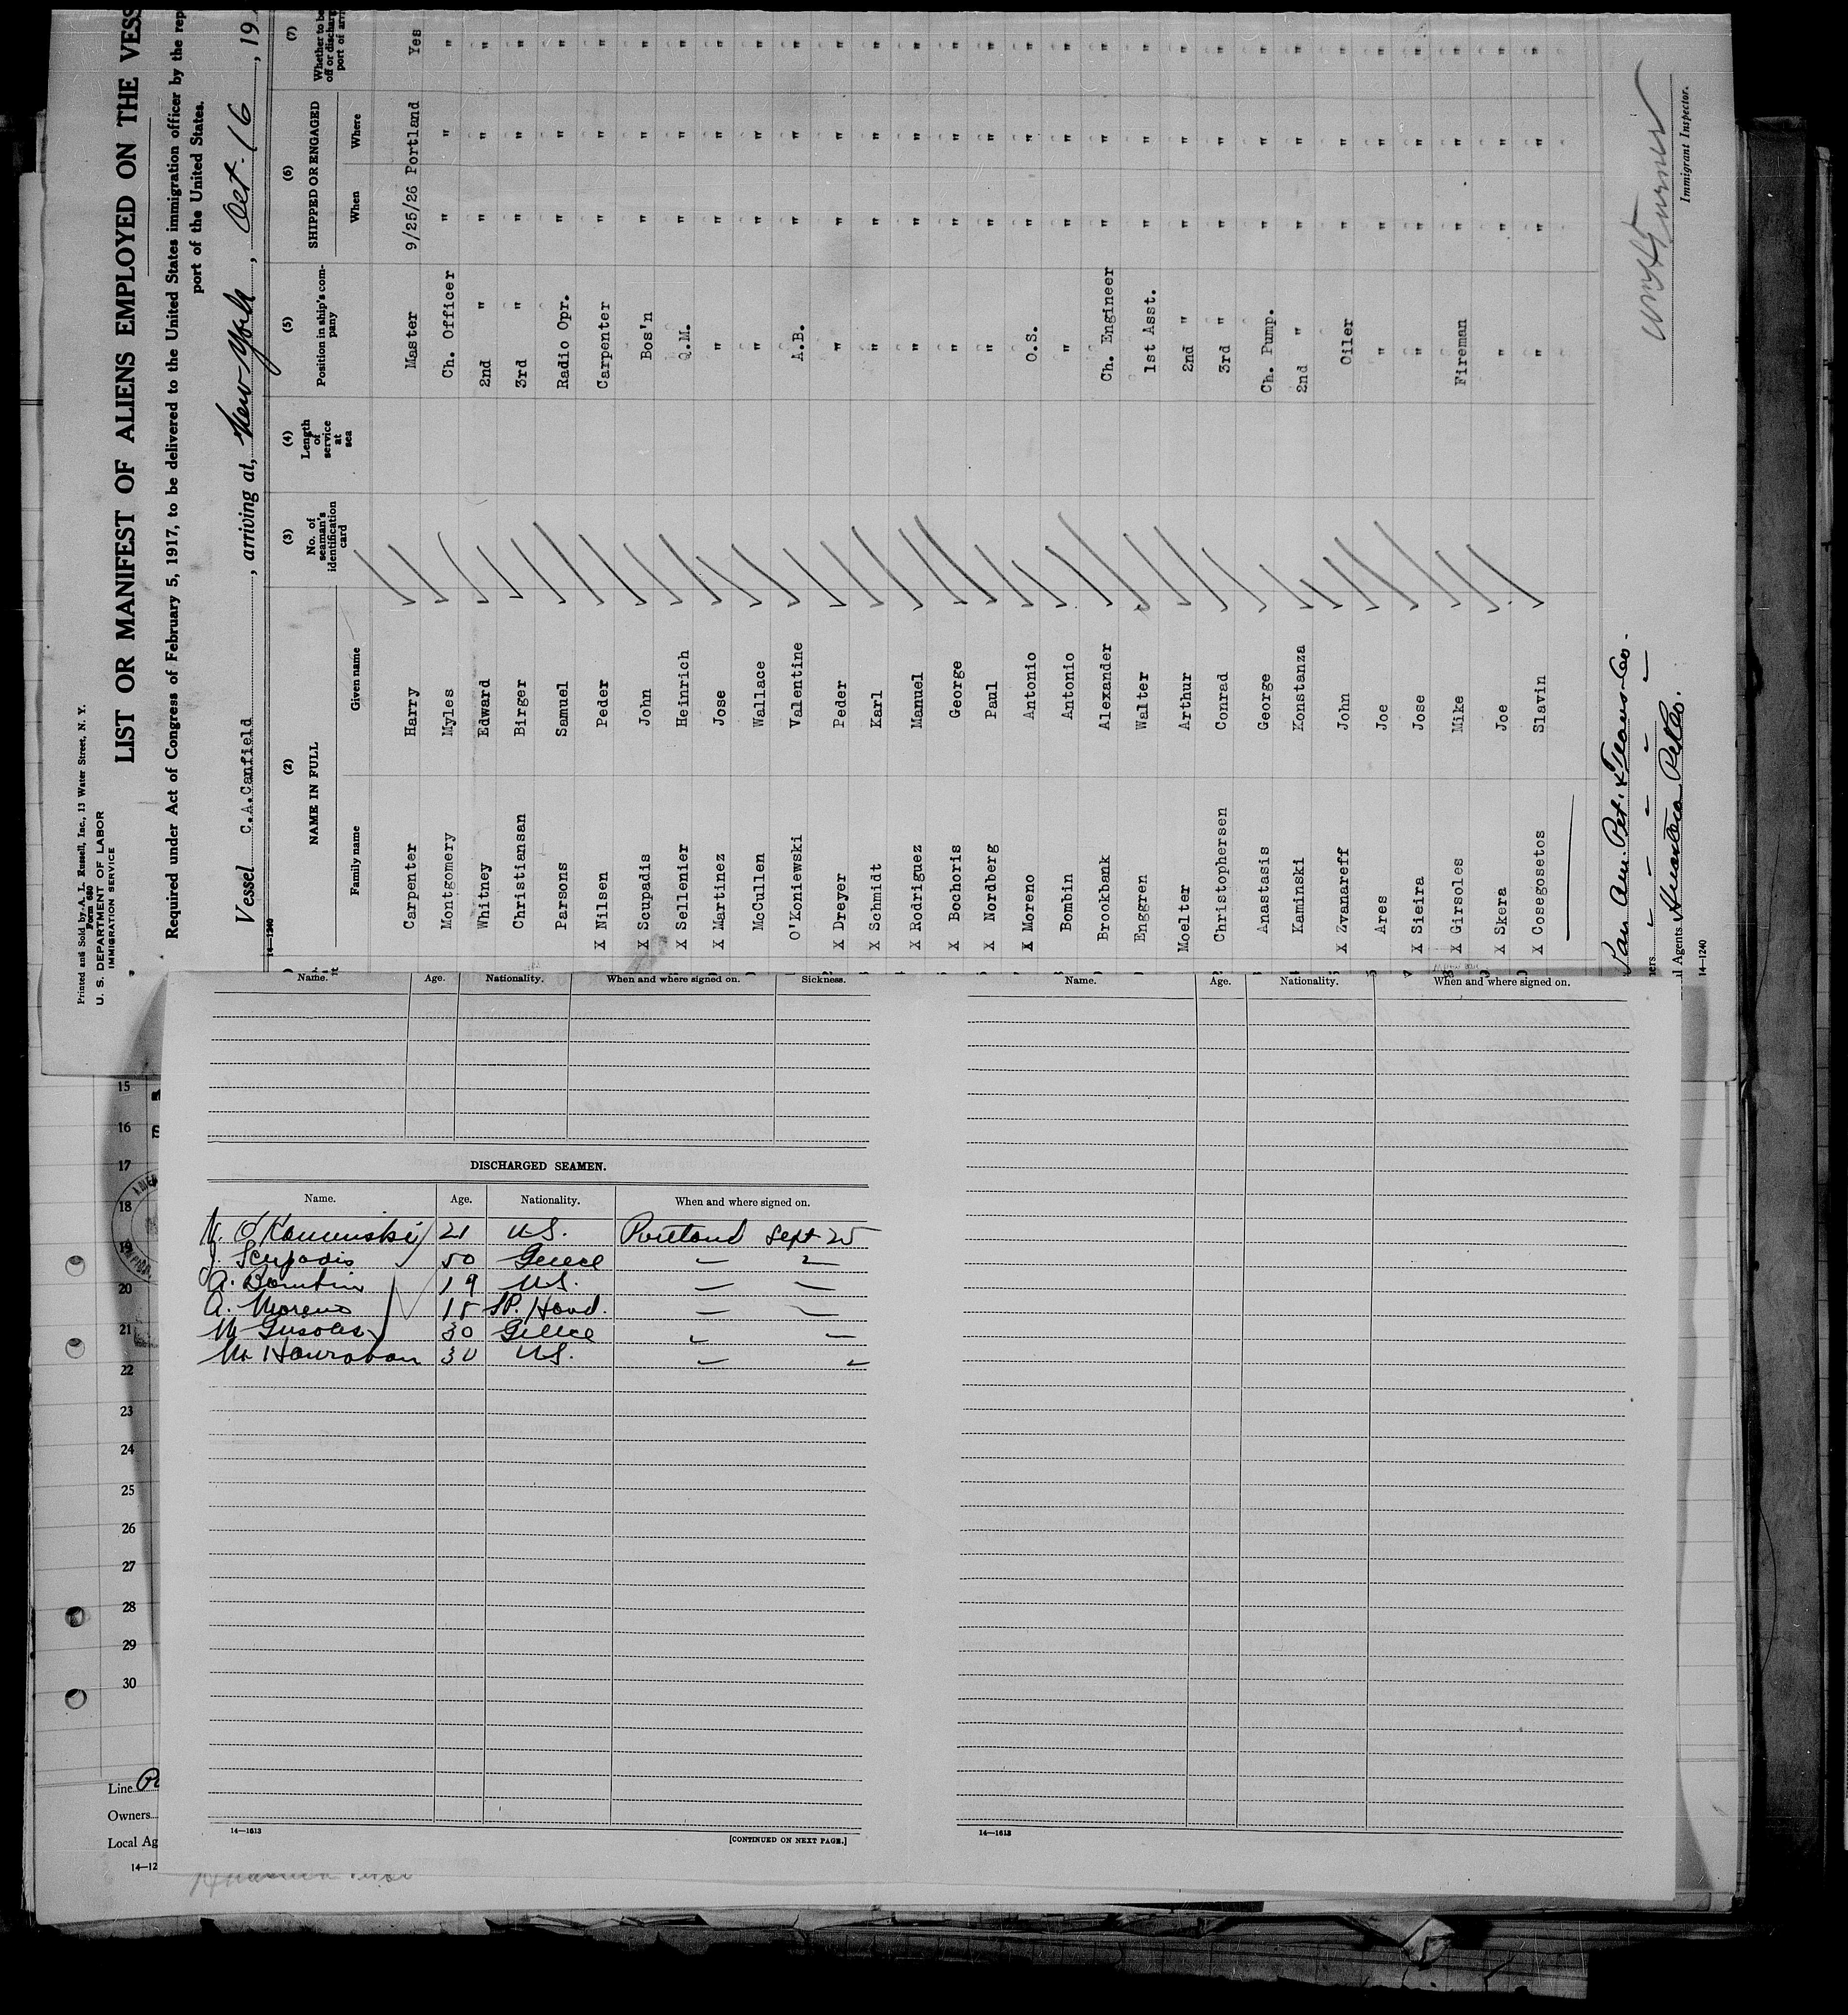 Printed and Sold by A. L. Russell, Inc., 13 Water Street, N. Y.
Form 680
U. S. DEPARTMENT OF LABOR
IMMIGRATION SERVICE
LIST OR MANIFEST OF ALIENS EMPLOYED ON THE VESS
Required under Act of Congress of February 5, 1917, to be delivered to the United States immigration officer by the rep
port of the United States.
Vessel C.A.Canfield, arriving at, New York, Oct. 16, 19
14—1240
(2) (3) (4) (5) (6) (7)
NAME IN FULL No. of seaman's identification card Length of service at sea Position in ship's company SHIPPED OR ENGAGED Whether to be
off or discharg
port of arri
Family name Given name When Where
Carpenter Harry Master 9/25/26 Portland Yes
Montgomery Myles Ch. Officer " " "
Whitney Edward 2nd " " " "
Christiansan Birger 3rd " " " "
Parsons Samuel Radio Opr. " " "
X Nilsen Peder Carpenter " " "
X Scupadis John Bos'n " " "
X Sellenier Heinrich Q.M. " " "
X Martinez Jose " " " "
McCullen Wallace " " " "
O'Koniewski Valentine A.B. " " "
X Dreyer Peder " " " "
X Schmidt Karl " " " "
X Rodriguez Manuel " " " "
X Bochoris George " " " "
X Nordberg Paul " " " "
X Moreno Antonio O.S. " " "
Bombin Antonio " " " "
Brookbank Alexander Ch. Engineer " " "
Enggren Walter 1st Asst. " " "
Moelter Arthur 2nd " " " "
Christophersen Conrad 3rd " " " "
Anastasis George Ch. Pump. " " "
Kaminski Konstanza 2nd " " " "
X Zvanareff John Oiler " " "
Ares Joe " " " "
X Sieira Jose " " " "
X Girsoles Mike Fireman " " "
X Skera Joe " " " "
X Cosegosetos Slavin " " " "
Pan Am. Pet. & Trans. Co.
ners
l Agents Huasteca Pet Co.
Immigrant Inspector.
14—1240
Name. Age. Nationality. When and where signed on. Sickness.
DISCHARGED SEAMEN.
Name. Age. Nationality. When and where signed on.
V. O'Kaminski 21 U.S. Portland Sept 25
J. Scupadis 50 Greece
A. Bombin 19 U.S.
A. Moreno 18 SP. Hond.
M Girsoles 30 Greece
M Hanrahan 30 U.S.
14—1613
[CONTINUED ON NEXT PAGE.]
Name. Age. Nationality. When and where signed on.
14—1613
15
16
17
18
19
20
21
22
23
24
25
26
27
28
29
30
Line
Owners
Local Ag
14—12